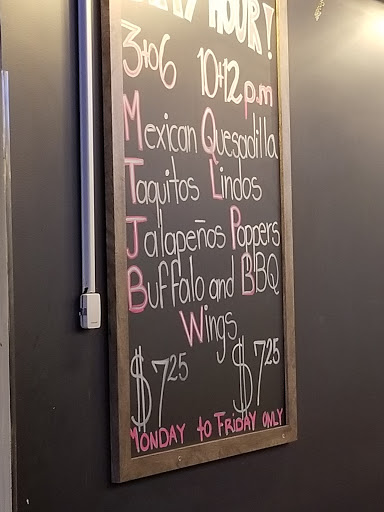 HOUR!
3 to 6 10 to 12 p.m
Mexican Quesadilla
Taquitos Lindos
Jalapeños Poppers
Buffalo and BBQ
Wings
$7.25 $7.25
MONDAY to FRiDAY ONLY